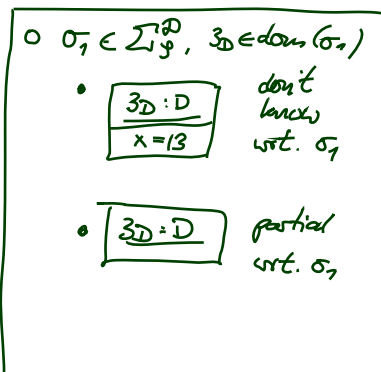 ○ σ₁ ∈ Σ_𝒮^𝒟, 3_D ∈ dom(σ₁)
• 3_D : D don't
x = 13 know
wrt. σ₁
• 3_D : D partial
wrt. σ₁